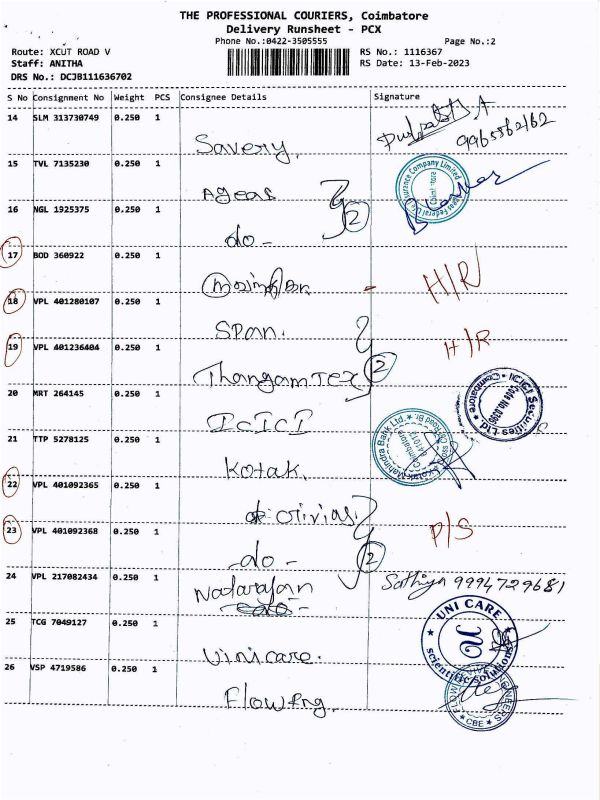 THE PROFESSIONAL COURIERS, Coimbatore
Delivery Runsheet - PCX
Phone No.:0422-3505555 Page No.:2
Route: XCUT ROAD V RS No.: 1116367
Staff: ANITHA RS Date: 13-Feb-2023
DRS No.: DCJB111636702
S No Consignment No Weight PCS Consignee Details Signature
14 SLM 313730749 0.250 1
Savery.
15 TVL 7135230 0.250 1
Ageas
16 NGL 1925375 0.250 1 2
do -
17 BOD 360922 0.250 1
H/R
18 VPL 401280107 0.250 1
Span.
19 VPL 401236404 0.250 1 H/R
Thangam Tex 2
20 MRT 264145 0.250 1
ICICI
ICICI Securities Ltd
Coimbatore
21 TTP 5278125 0.250 1
Kotak.
Kotak Mahindra Bank Ltd.
Coimbatore
22 VPL 401092365 0.250 1
23 VPL 401092368 0.250 1 P/S
do - 2
24 VPL 217082434 0.250 1 Sathiya 9994729681
Natarajan
25 TCG 7049127 0.250 1
UNI CARE
scientific solutions
UC
Unicare.
26 VSP 4719586 0.250 1
Flow Eng.
CBE